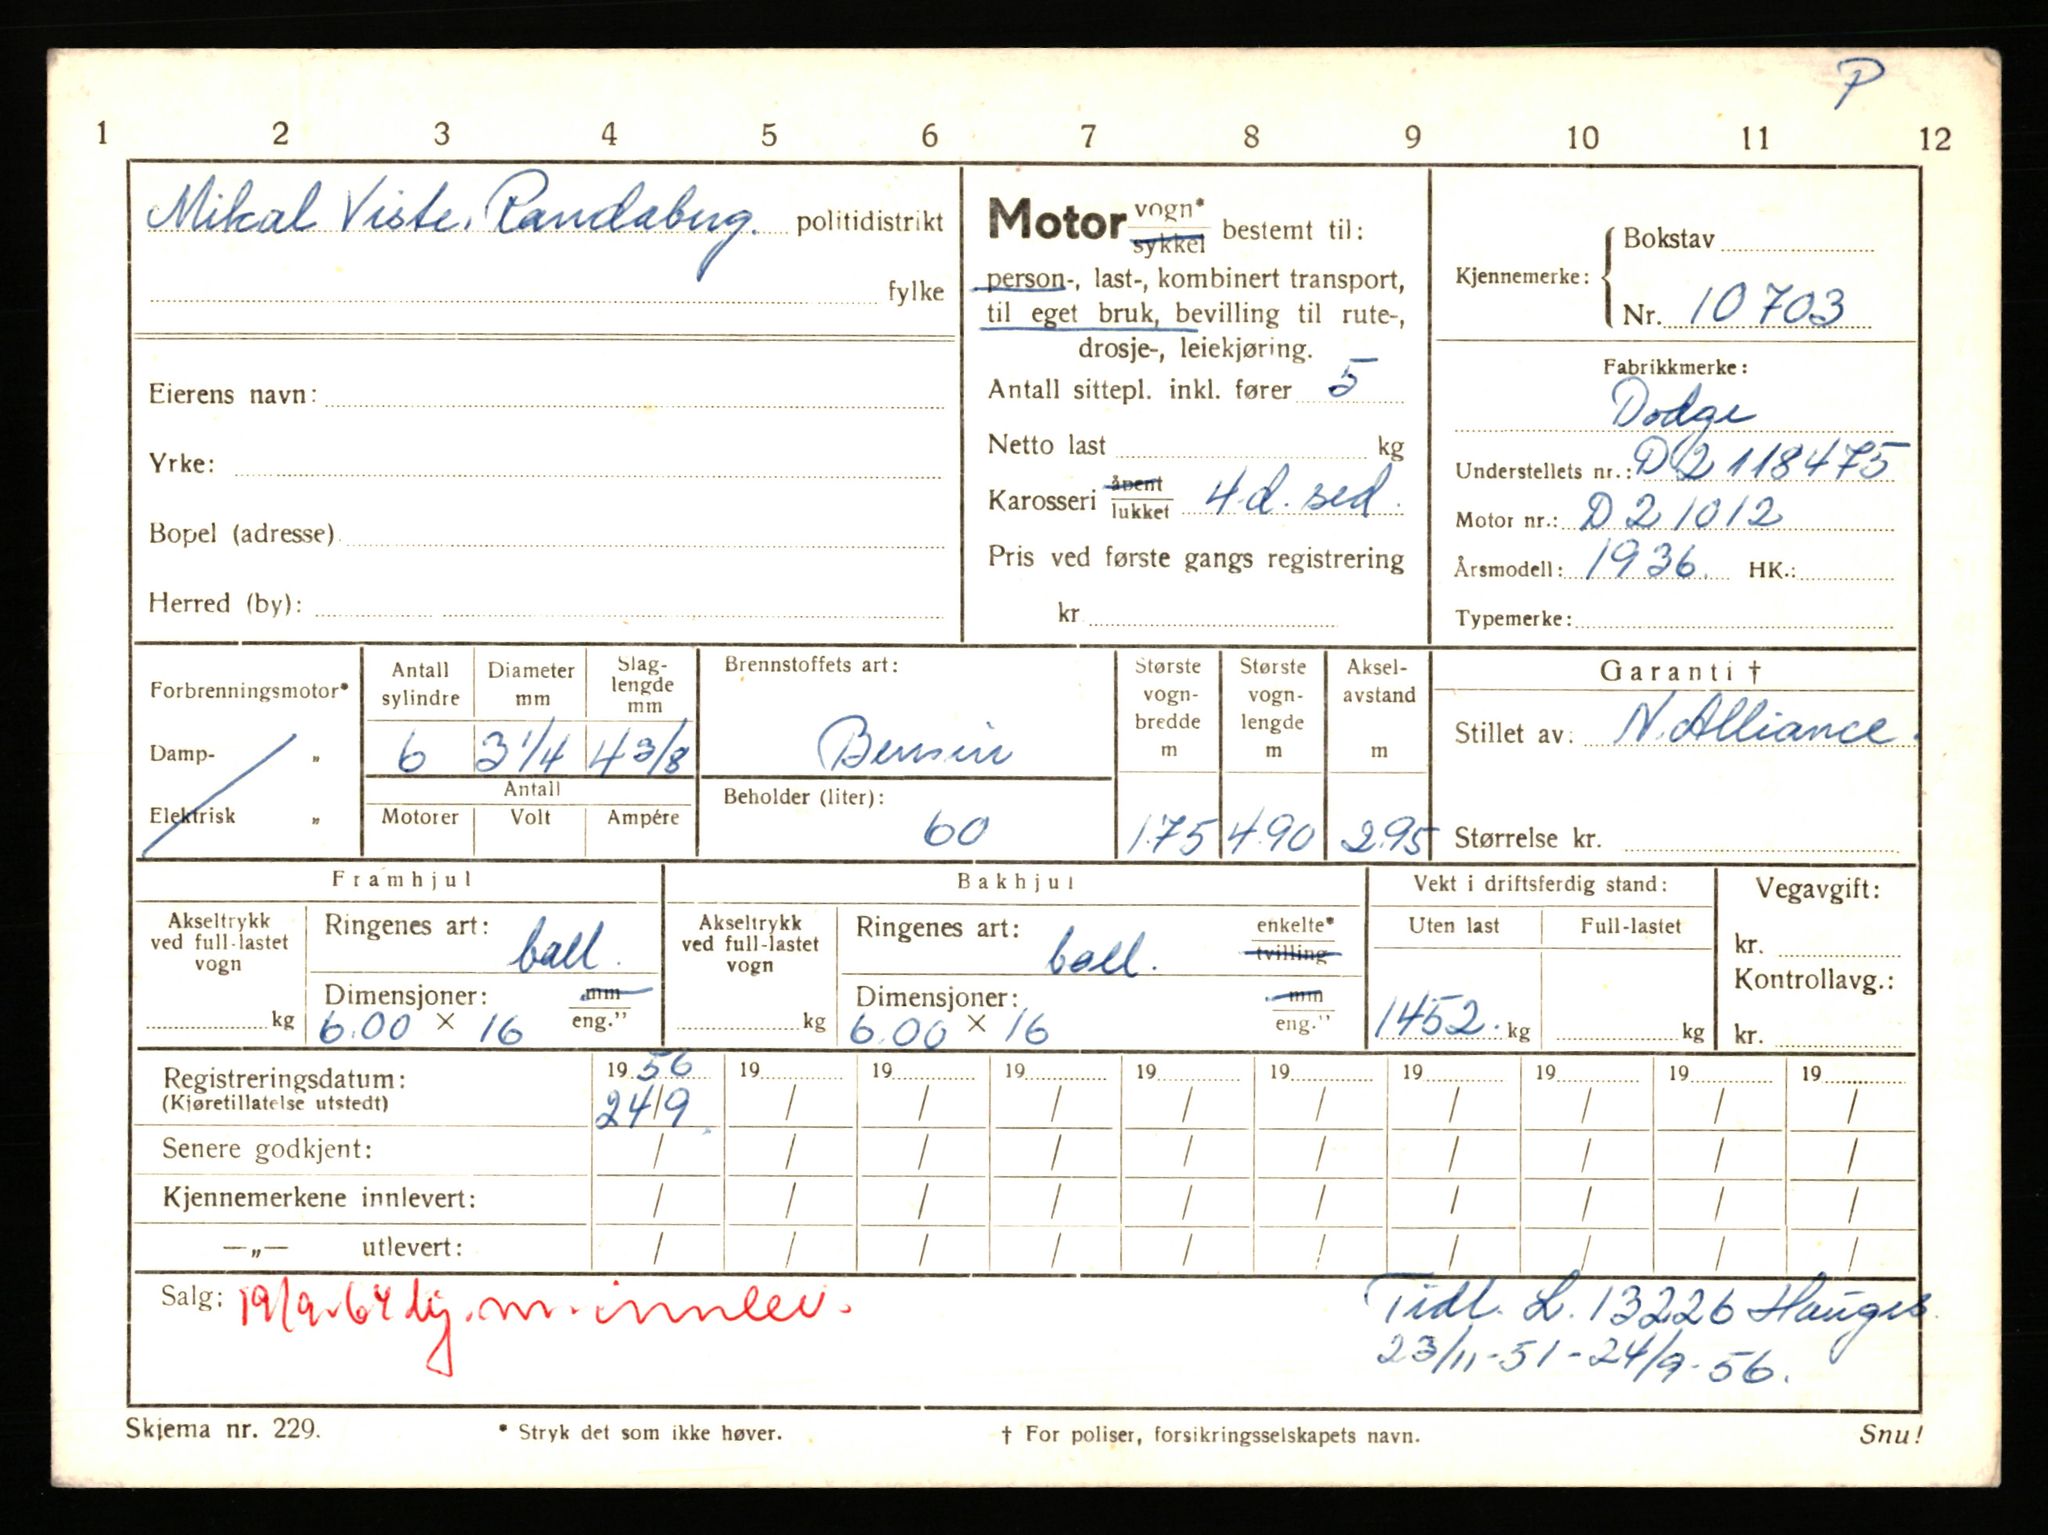 P
1 2 3 4 5 6 7 8 9 10 11 12
Mikal Viste, Randaberg. politidistrikt
fylke
Eierens navn:
Yrke:
Bopel (adresse)
Herred (by):
Motor vogn* sykkel bestemt til:
person-, last-, kombinert transport,
til eget bruk, bevilling til rute-,
drosje-, leiekjøring.
Antall sittepl. inkl. fører 5
Netto last kg
Karosseri åpent lukket 4.d. sed.
Pris ved første gangs registrering
kr.
Kjennemerke: Bokstav
Nr. 10703
Fabrikkmerke:
Dodge
Understellets nr.: D2 118475
Motor nr.: D 2 1012
Årsmodell: 1936. HK.:
Typemerke:
Forbrenningsmotor*
Damp- „
Elektrisk „
Antall sylindre
6
Diameter mm
3 1/4
Slag-lengde mm
4 3/8
Antall
Motorer Volt Ampére
Brennstoffets art:
Bensin
Beholder (liter):
60
Største vogn-bredde m
1.75
Største vogn-lengde m
4.90
Aksel-avstand m
2.95
Garanti †
Stillet av: N. Alliance.
Størrelse kr.
Framhjul
Akseltrykk ved full-lastet vogn
kg
Ringenes art:
ball.
Dimensjoner: mm eng."
6.00 × 16
Bakhjul
Akseltrykk ved full-lastet vogn
kg
Ringenes art: enkelte* tvilling
ball.
Dimensjoner: mm eng."
6.00 × 16
Vekt i driftsferdig stand:
Uten last Full-lastet
1452. kg kg
Vegavgift:
kr.
Kontrollavg.:
kr.
Registreringsdatum: 19 56 19 19 19 19 19 19 19 19 19
(Kjøretillatelse utstedt) 24/9. / / / / / / / / /
Senere godkjent: / / / / / / / / / /
Kjennemerkene innlevert: / / / / / / / / / /
—„— utlevert: / / / / / / / / / /
Salg: 19/9-64 kj. m. innlev.
Tidl. L. 13226 Hauges.
23/11-51-24/9-56.
Skjema nr. 229. * Stryk det som ikke høver. † For poliser, forsikringsselskapets navn. Snu!